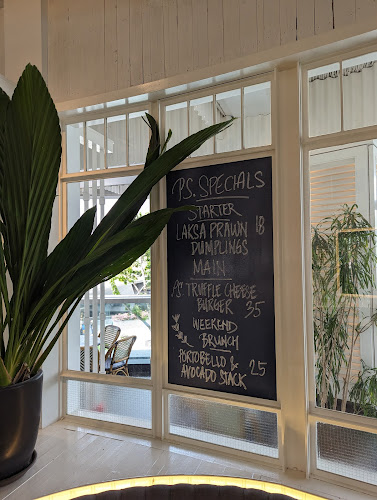 P.S. SPECIALS
STARTER
LAKSA PRAWN 18
DUMPLINGS
MAIN
P.S. TRUFFLE CHEESE
BURGER 35
WEEKEND
BRUNCH
PORTOBELLO &
AVOCADO STACK 25